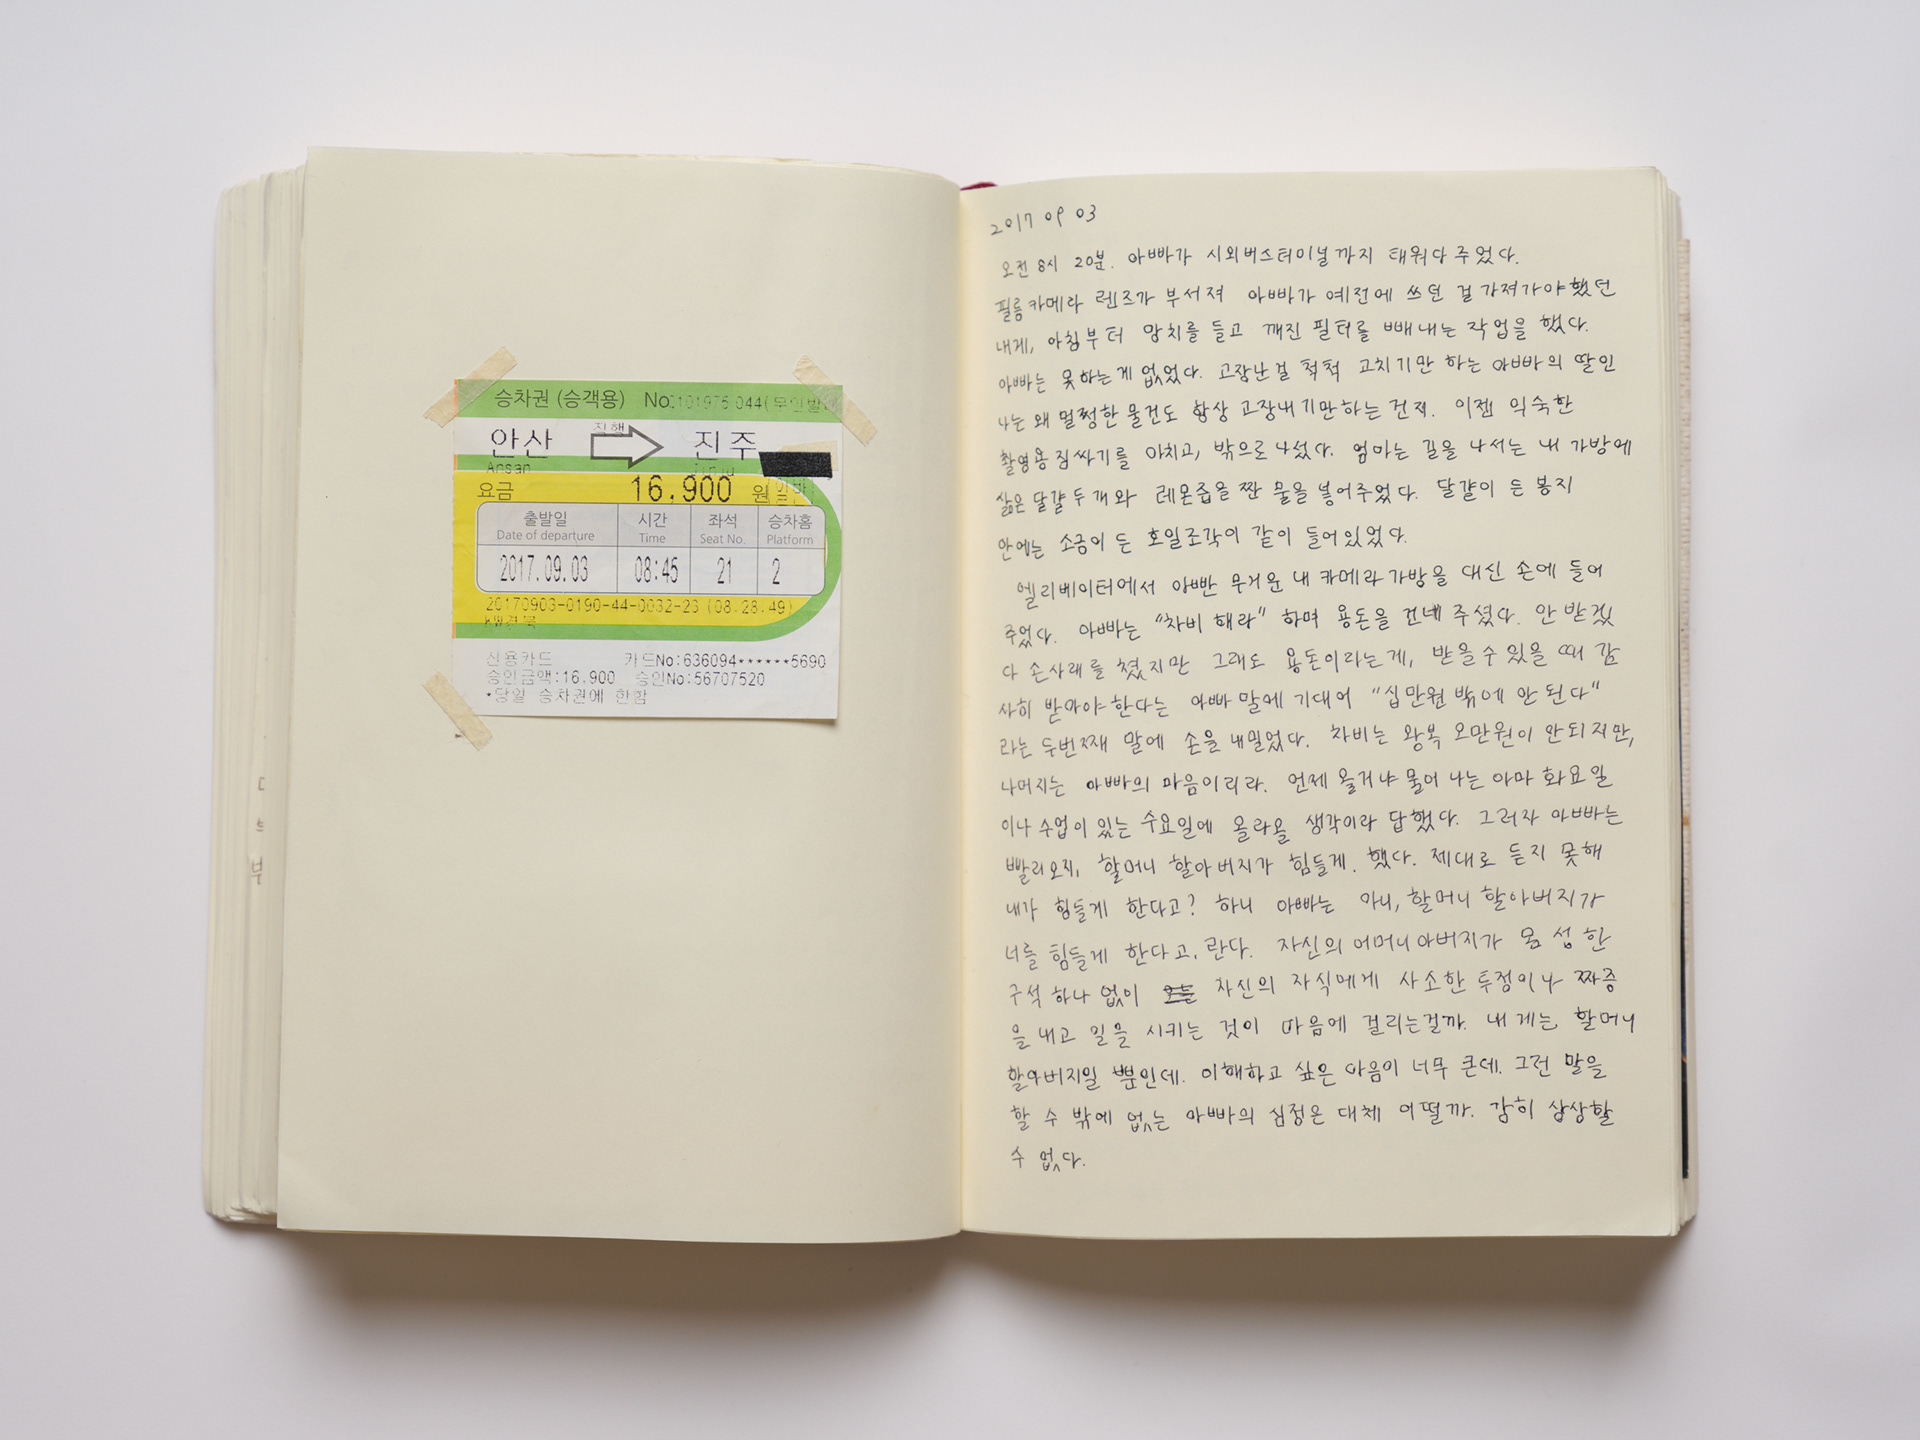 승차권 (승객용) No:101975-044(무인발
안산 직행 진주
Ansan Jinju
요금 16,900 원
출발일 시간 좌석 승차홈
Date of departure Time Seat No. Platform
2017.09.03 08:45 21 2
20170903-0190-44-0032-23 (08.28.49)
신용카드 카드No:636094******5690
승인금액:16,900 승인No:56707520
*당일 승차권에 한함
부
2017 09 03
오전 8시 20분. 아빠가 시외버스터미널까지 태워다 주었다.
필름카메라 렌즈가 부서져 아빠가 예전에 쓰던 걸 가져가야했던
내게, 아침부터 망치를 들고 깨진 필터를 빼내는 작업을 했다.
아빠는 못하는게 없었다. 고장난걸 척척 고치기만 하는 아빠의 딸인
나는 왜 멀쩡한 물건도 항상 고장내기만하는 건지. 이젠 익숙한
촬영용 짐싸기를 마치고, 밖으로 나섰다. 엄마는 길을 나서는 내 가방에
삶은 달걀 두 개와 레몬즙을 짠 물을 넣어주었다. 달걀이 든 봉지
안에는 소금이 든 호일조각이 같이 들어있었다.
엘리베이터에서 아빤 무거운 내 카메라 가방을 대신 손에 들어
주었다. 아빠는 "차비 해라" 하며 용돈을 건네 주셨다. 안 받겠
다 손사래를 쳤지만 그래도 용돈이라는게, 받을수 있을 때 감
사히 받아야 한다는 아빠 말에 기대어 "십만원 밖에 안 된다"
라는 두번째 말에 손을 내밀었다. 차비는 왕복 오만원이 안되지만,
나머지는 아빠의 마음이리라. 언제 올거냐 물어 나는 아마 화요일
이나 수업이 있는 수요일에 올라올 생각이라 답했다. 그러자 아빠는
빨리오지, 할머니 할아버지가 힘들게. 했다. 제대로 듣지 못해
내가 힘들게 한다고? 하니 아빠는 아니, 할머니 할아버지가
너를 힘들게 한다고, 란다. 자신의 어머니아버지가 몸 성한
구석 하나 없이 자신의 자식에게 사소한 투정이나 짜증
을 내고 일을 시키는 것이 마음에 걸리는걸까. 내게는 할머니
할아버지일 뿐인데. 이해하고 싶은 마음이 너무 큰데. 그런 말을
할 수 밖에 없는 아빠의 심정은 대체 어떨까. 감히 상상할
수 없다.